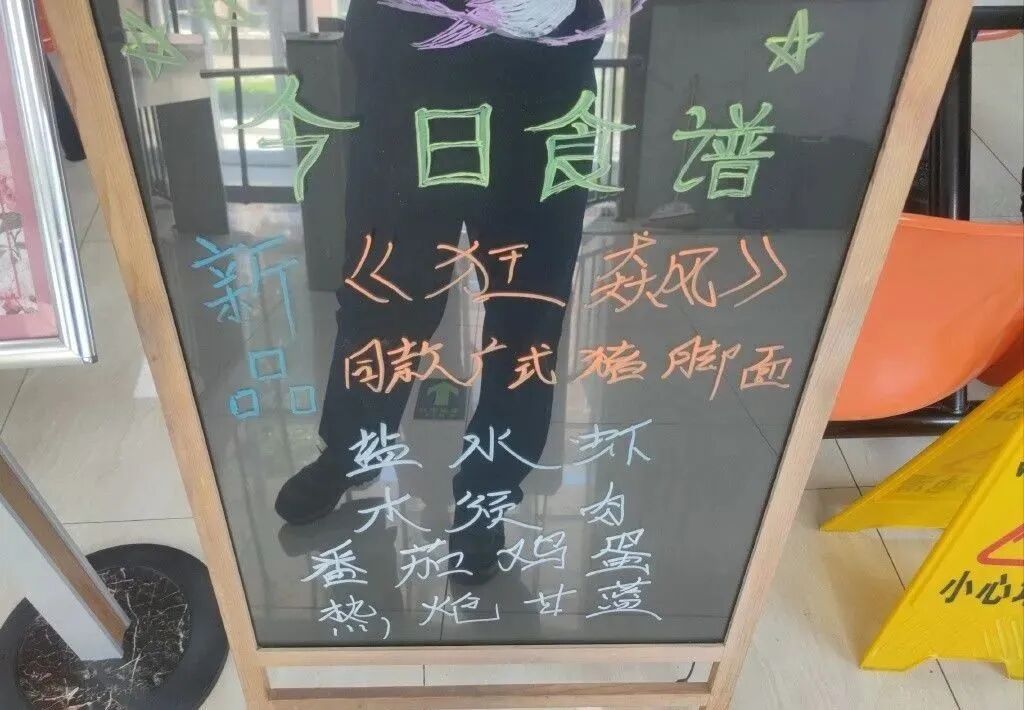 今日食谱
新品
《狂飙》
同款广式猪脚面
盐水
木须肉
番茄鸡蛋
热炝甘蓝
小心